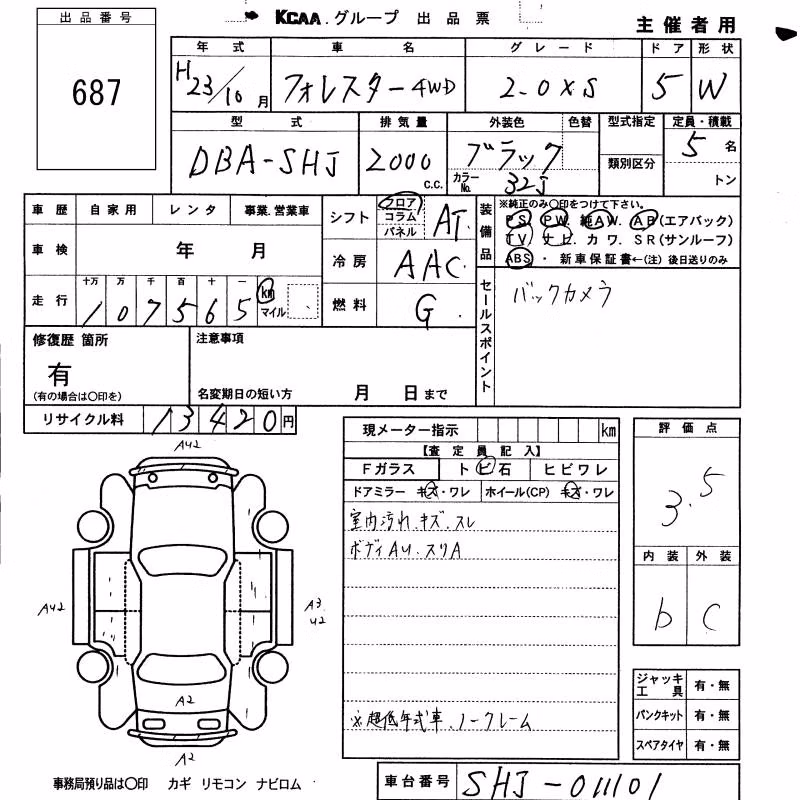 出品番号
687
KCAA.グループ 出品票
主催者用
年式 車名 グレード ドア 形状
H23/10月 フォレスター4WD 2.0XS 5 W
型式 排気量 外装色 色替 型式指定 定員・積載
DBA-SHJ 2000c.c. ブラック 5名
カラーNo. 32J 類別区分 トン
車歴 自家用 レンタ 事業.営業車
車検 年 月
走行 十万 万 千 百 十 一
107565 km マイル
シフト フロア コラム パネル AT
冷房 AAC
燃料 G
装備品 ※純正のみ○印をつけて下さい。
PS. PW. 純AW. AB(エアバック)
TV. ナビ. カワ. SR(サンルーフ)
ABS・ 新車保証書←(注) 後日送りのみ
セールスポイント バックカメラ
修復歴 箇所 注意事項
有
(有の場合は○印を) 名変期日の短い方 月 日まで
リサイクル料 13420円
現メーター指示 km
【査定員記入】
Fガラス トビ石 ヒビワレ
ドアミラー キズ・ワレ ホイール(CP) キズ・ワレ
室内汚れ.キズ.スレ
ボディAU.スリA
※超低年式車.ノークレーム
評価点
3.5
内装 外装
b C
ジャッキ工具 有・無
パンクキット 有・無
スペアタイヤ 有・無
AU2
AU2
A3
U2
A2
A2
事務局預り品は○印 カギ リモコン ナビロム
車台番号 SHJ-011101